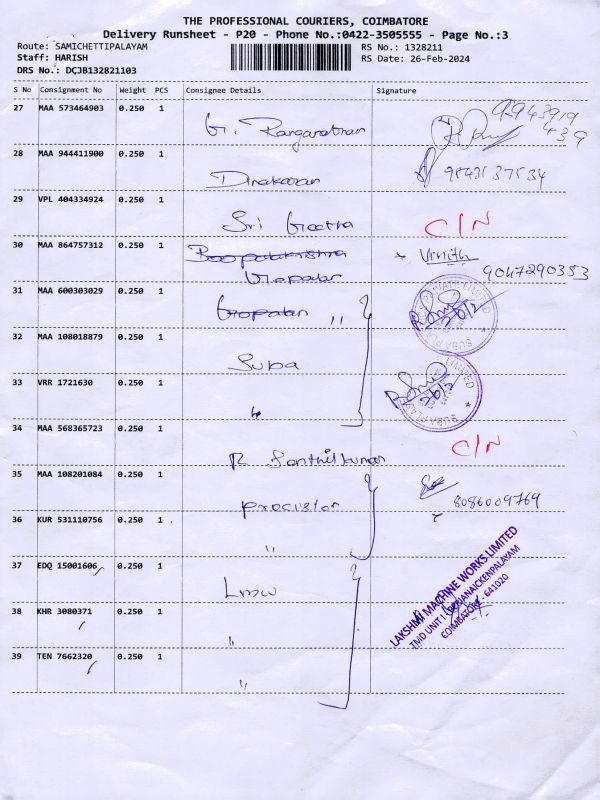 THE PROFESSIONAL COURIERS, COIMBATORE
Delivery Runsheet - P20 - Phone No.:0422-3505555 - Page No.:3
Route: SAMICHETTIPALAYAM RS No.: 1328211
Staff: HARISH RS Date: 26-Feb-2024
DRS No.: DCJB132821103
S No Consignment No Weight PCS Consignee Details Signature
27 MAA 573464903 0.250 1 Ranganathan
28 MAA 944411900 0.250 1 Dinakaran 9543537534
29 VPL 404334924 0.250 1 Sri Geetha C/N
30 MAA 864757312 0.250 1 Gopalan Vinith 9047290353
31 MAA 600303029 0.250 1 Gopalan "
32 MAA 108018879 0.250 1 Suba
33 VRR 1721630 0.250 1 "
34 MAA 568365723 0.250 1 R Senthilkumar C/N
35 MAA 108201084 0.250 1 Precision 8086009769
36 KUR 531110756 0.250 1 "
37 EDQ 15001606 0.250 1 Lmw
38 KHR 3080371 0.250 1 "
39 TEN 7662320 0.250 1 "
LAKSHMI MACHINE WORKS LIMITED
COIMBATORE - 641020